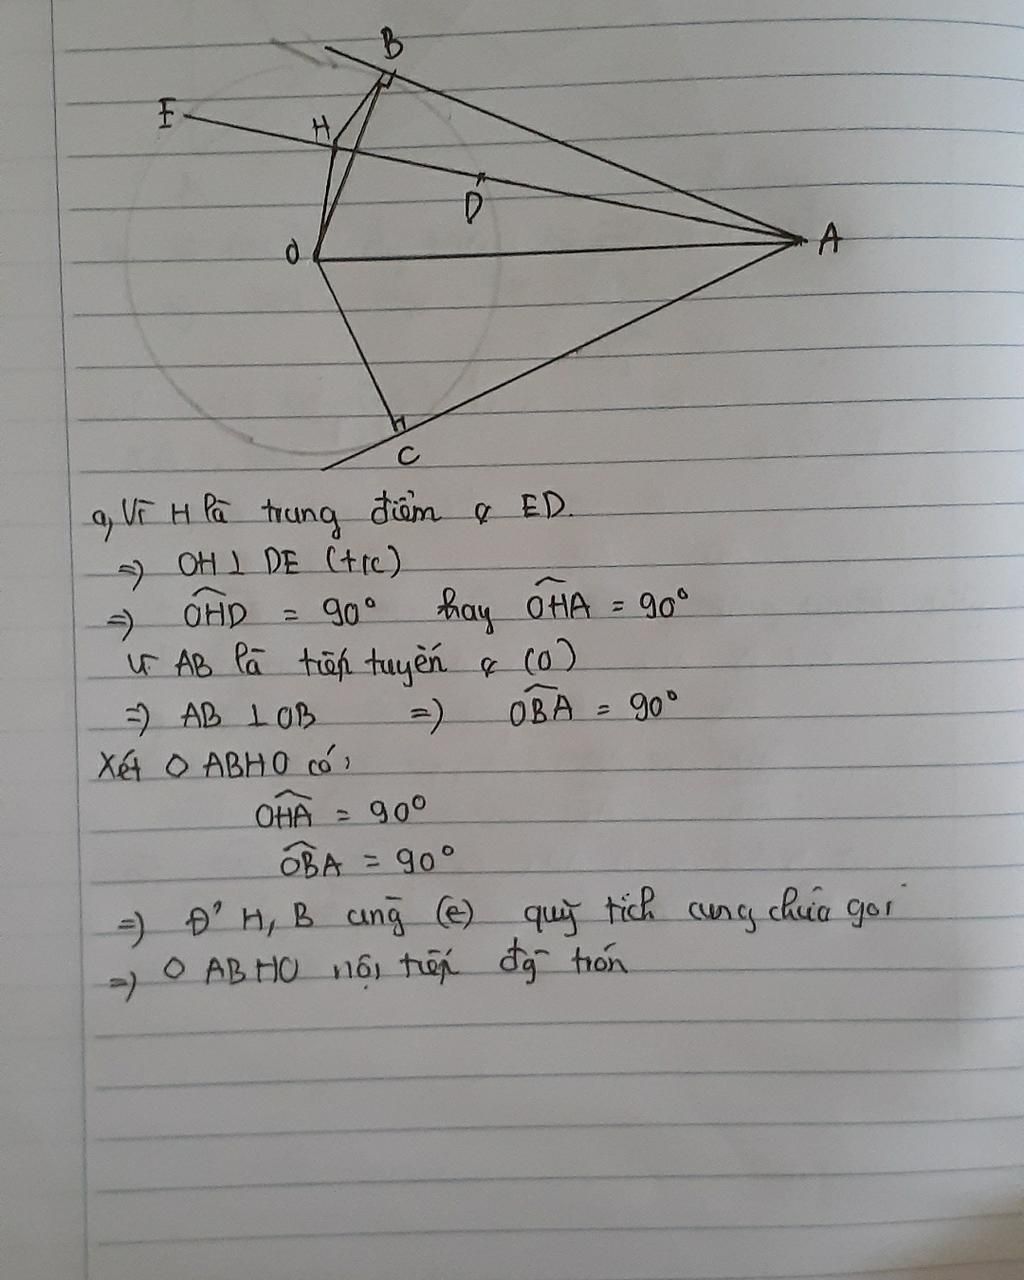 B
E
H
D
O
A
C
a, Vì H là trung điểm ¢ ED.
=> OH ⊥ DE (t/c)
=> OHD = 90° hay OHA = 90°
Vì AB là tiếp tuyến ¢ (O)
=> AB ⊥ OB => OBA = 90°
Xét ◇ ABHO có,
OHA = 90°
OBA = 90°
=> Đ' H, B cùng (e) quỹ tích cung chứa góc
=> ◇ ABHO nội tiếp đg tròn